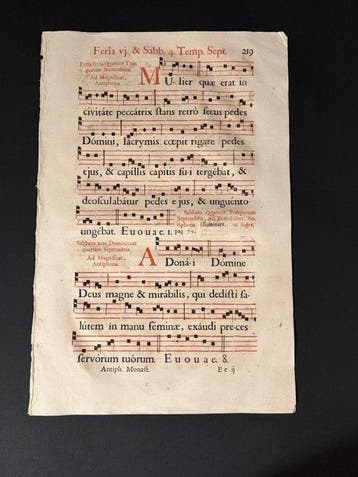 Feria vj. & Sabb. 4. Temp. Sept. 219
Feria sexta Quatuor Tem-
porum Septembris.
Ad Magnificat,
Antiphona.
MU lier quæ erat in
civitáte peccátrix stans retrò secus pedes
Dómini, lácrymis cœpit rigare pedes
ejus, & capíllis cápitis su-i tergébat, &
deosculabátur pedes ejus, & unguénto
Sabbato Quatuor Temporum
Septembris, ad Benedictus, An-
tiphona Illuminare,
ungébat. E u o u a e. 1.
Sabbato ante Dominicam
quartam Septembris.
Ad Magnificat,
Antiphona.
A Doná-i Dómine
Deus magne & mirábilis, qui dedísti sa-
lútem in manu féminæ, exáudi pre-ces
servórum tuórum. E u o u a e. 8.
Antiph. Monast. E e ij